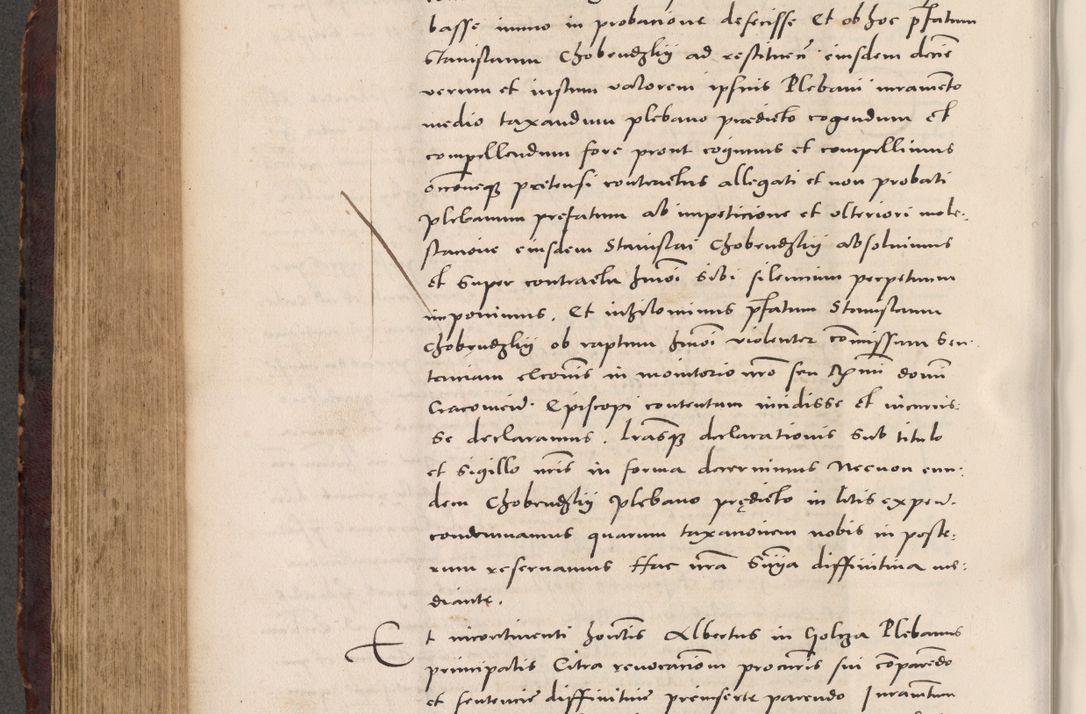 basse immo in probacione defecisse Et ob hoc pfatum
Stanislaum Chobendzkij ad restituen eiusdem decie
verum et iustum valorem ipsius Plebani iuramento
medio taxandum plebano predicto cogendum et
compellendum fore prout cogimus et compellimus
pretensi contractus allegati et non probati
plebanum prefatum ab impeticione et ulteriori mole:
stacione eiusdem Stanislai Chobendzkij absolvimus
et super contractu hmoi sibi silencium perpetuum
imponimus. Et nihilominus pfatum Stanislaum
Chobendzkij ob raptum hmoi violenter comissum Sen:
tenciam excois in monitorio nro seu Rmi domi
Cracovien. Episcopi contentam incidisse et incuris:
se declaramus. lrasq declarationis sub titulo
et sigillo nris in forma decernimus Necnon eun:
dem Chobendzkij plebano predicto in litis expen.
condemnamus quarum taxacionem nobis in poste:
rum reservamus Hac nra Snia diffinitiva me:
diante.
Et incontinenti hontis Albertus in Golcza Plebanus
principalis Citra revocacionem procuris sui comparendo
et sentencie diffinitive preinserte parendo Iuramentum